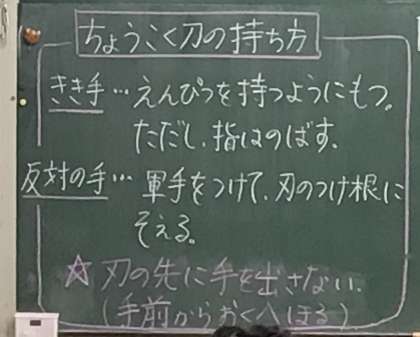 ちょうこく刀の持ち方
きき手…えんぴつを持つようにもつ。
ただし、指はのばす。
反対の手…軍手をつけて、刃のつけ根に
そえる。
☆刃の先に手を出さない。
(手前からおくへほる)